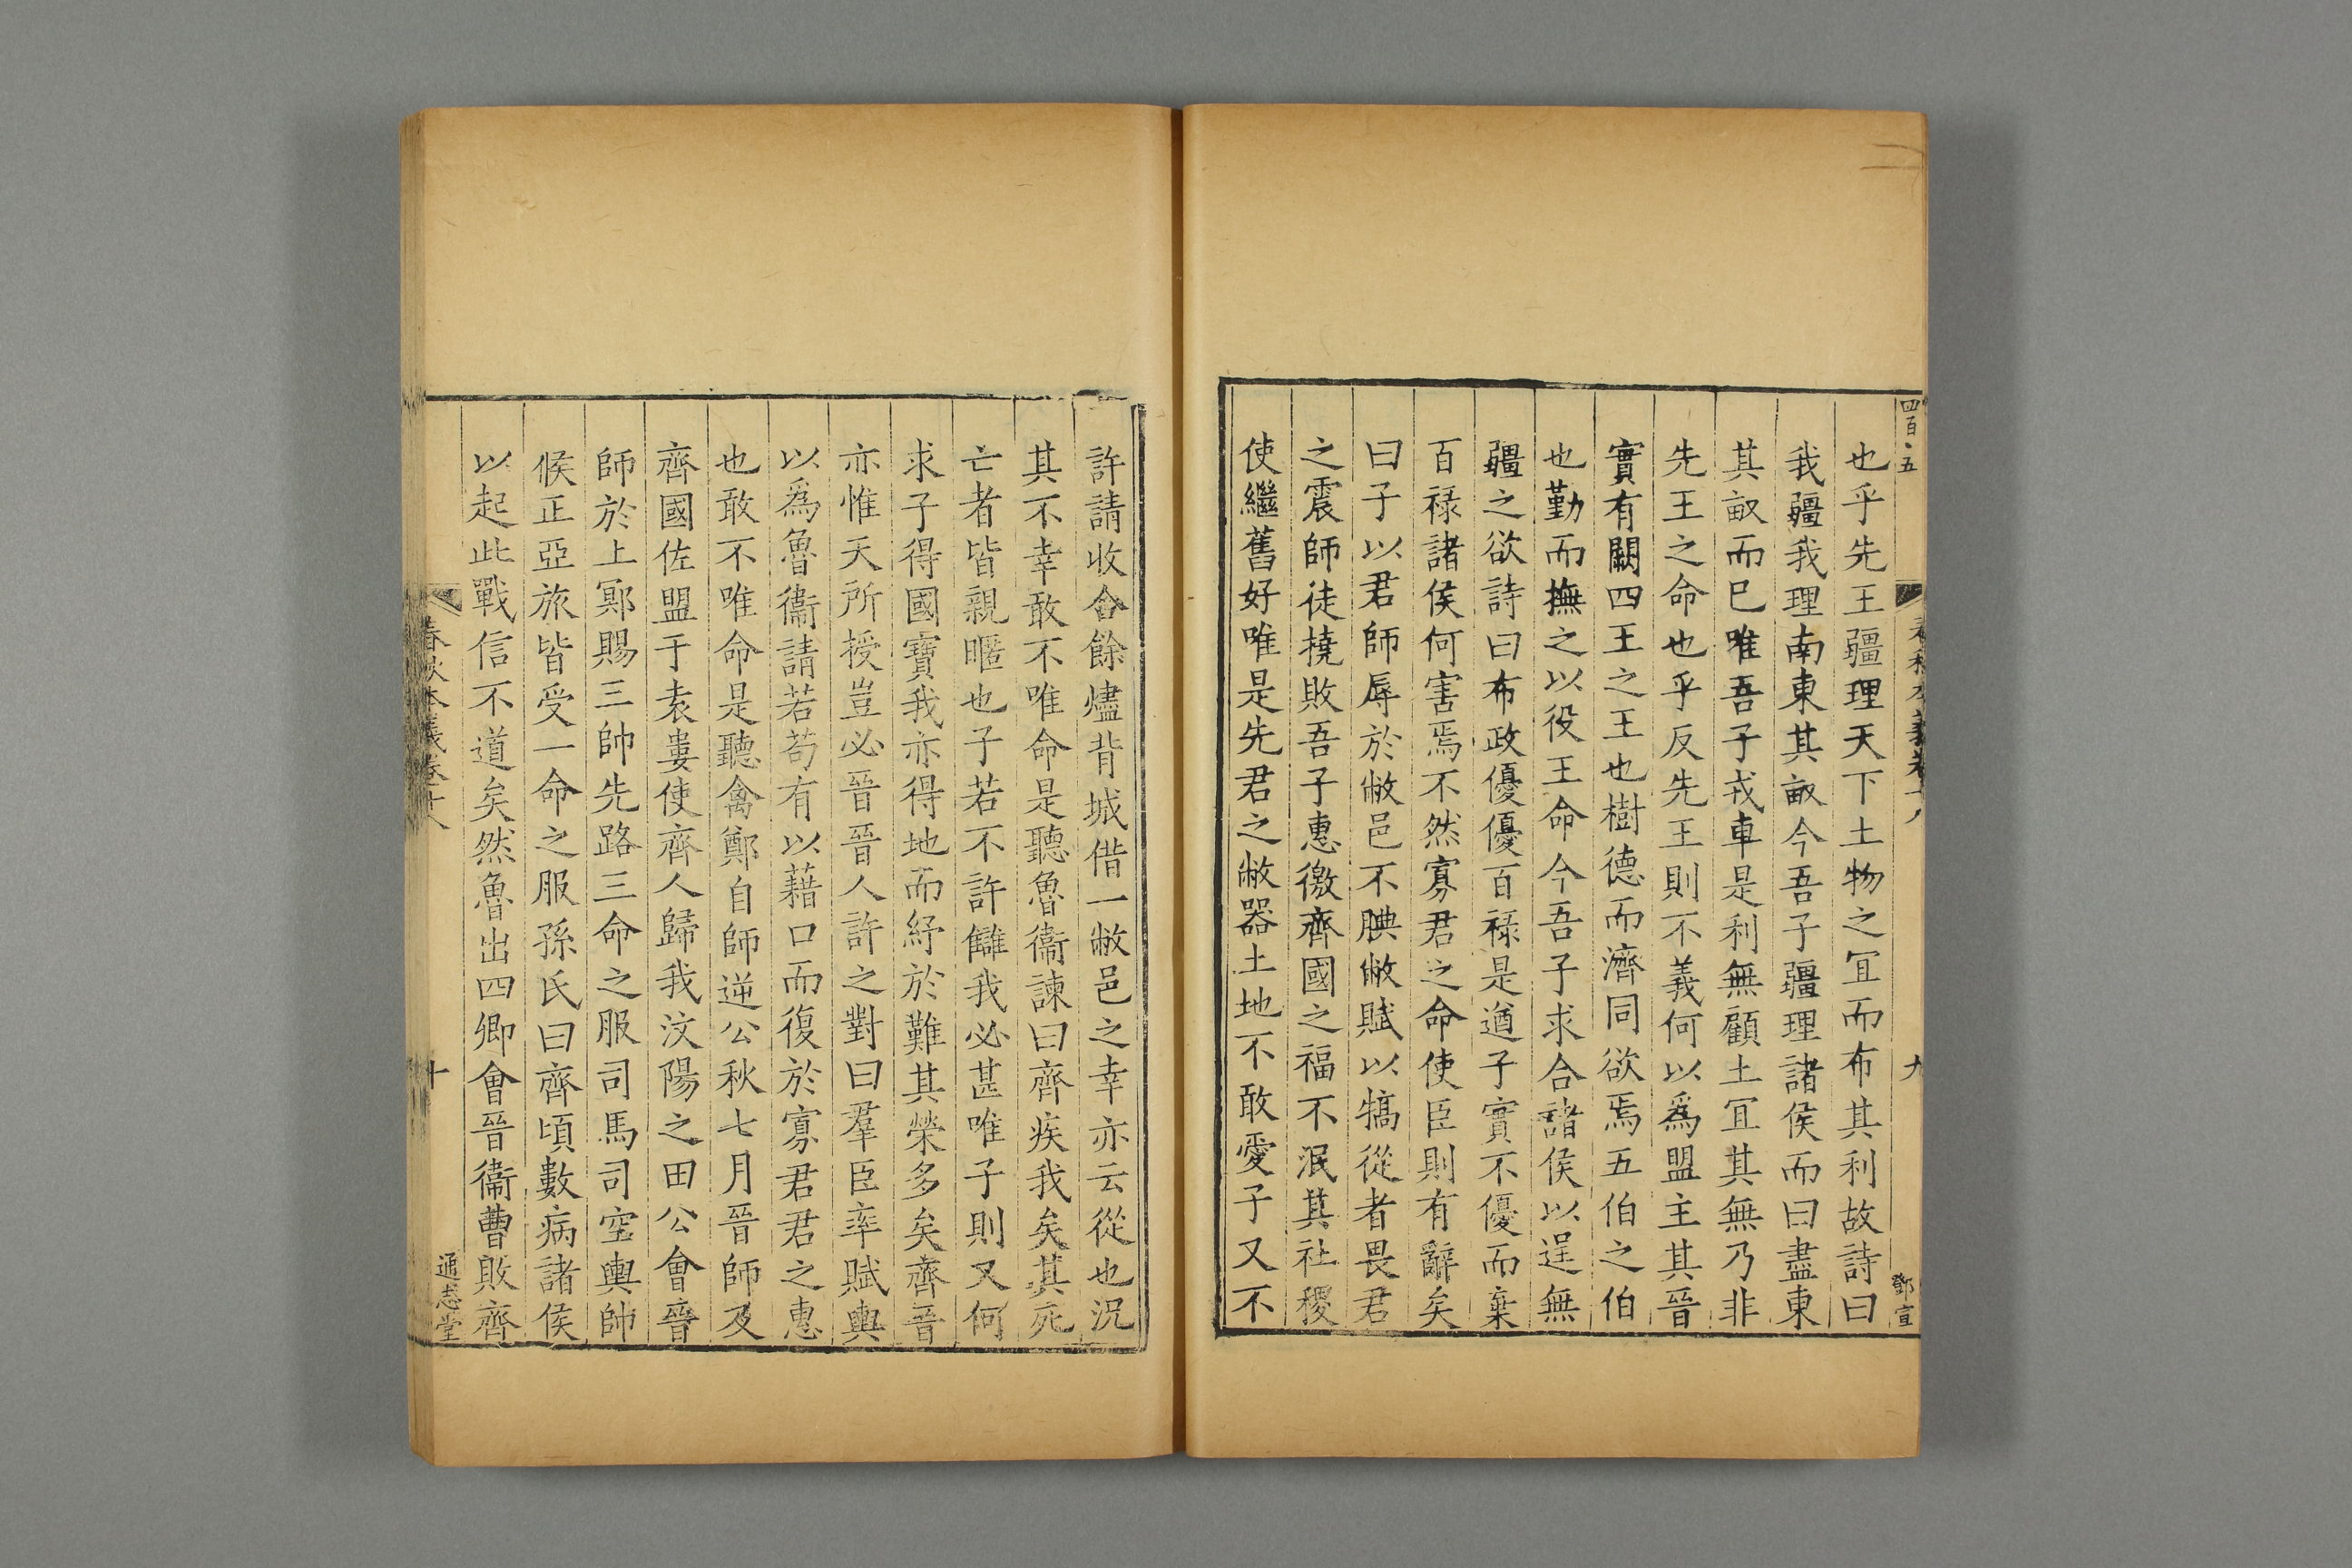 四百〇五
春秋本義卷十八
九
鄧宣
也乎先王疆理天下土物之冝而布其利故詩曰
我疆我理南東其畝今吾子疆理諸侯而曰盡東
其畝而已唯吾子戎車是利無顧土冝其無乃非
先王之命也乎反先王則不義何以爲盟主其晉
實有闕四王之王也樹德而濟同欲焉五伯之伯
也勤而撫之以役王命今吾子求合諸侯以逞無
疆之欲詩曰布政優優百禄是遒子實不優而棄
百禄諸侯何害焉不然寡君之命使臣則有辭矣
曰子以君師辱於敝邑不腆敝賦以犒從者畏君
之震師徒撓敗吾子惠徼齊國之福不泯其社稷
使繼舊好唯是先君之敝器土地不敢愛子又不
許請收合餘燼背城借一敝邑之幸亦云從也況
其不幸敢不唯命是聽魯衞諫曰齊疾我矣其死
亡者皆親暱也子若不許讎我必甚唯子則又何
求子得國寶我亦得地而紓於難其榮多矣齊晉
亦惟天所授豈必晉晉人許之對曰羣臣率賦輿
以爲魯衞請若苟有以藉口而復於寡君君之惠
也敢不唯命是聽禽鄭自師逆公秋七月晉師及
齊國佐盟于袁婁使齊人歸我汶陽之田公會晉
師於上鄍賜三帥先路三命之服司馬司空輿帥
候正亞旅皆受一命之服孫氏曰齊頃數病諸侯
以起此戰信不道矣然魯出四卿會晉衞曹敗齊
春秋本義卷十八
十
通志堂